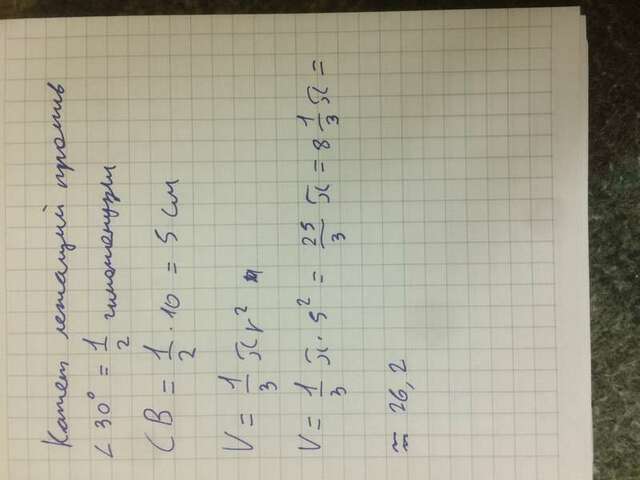 Катет лежащий против
∠30° = 1/2 гипотенузы
CB = 1/2 · 10 = 5 см
V = 1/3 π r²
V = 1/3 π · 5² = 25/3 π = 8 1/3 π =
≈ 26,2